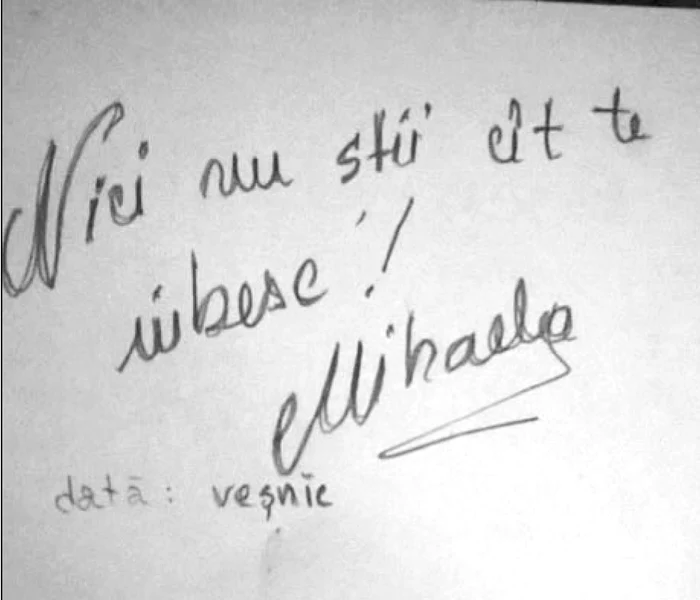 Nici nu stii cît te
iubesc!
Mihaela
dată: veșnic